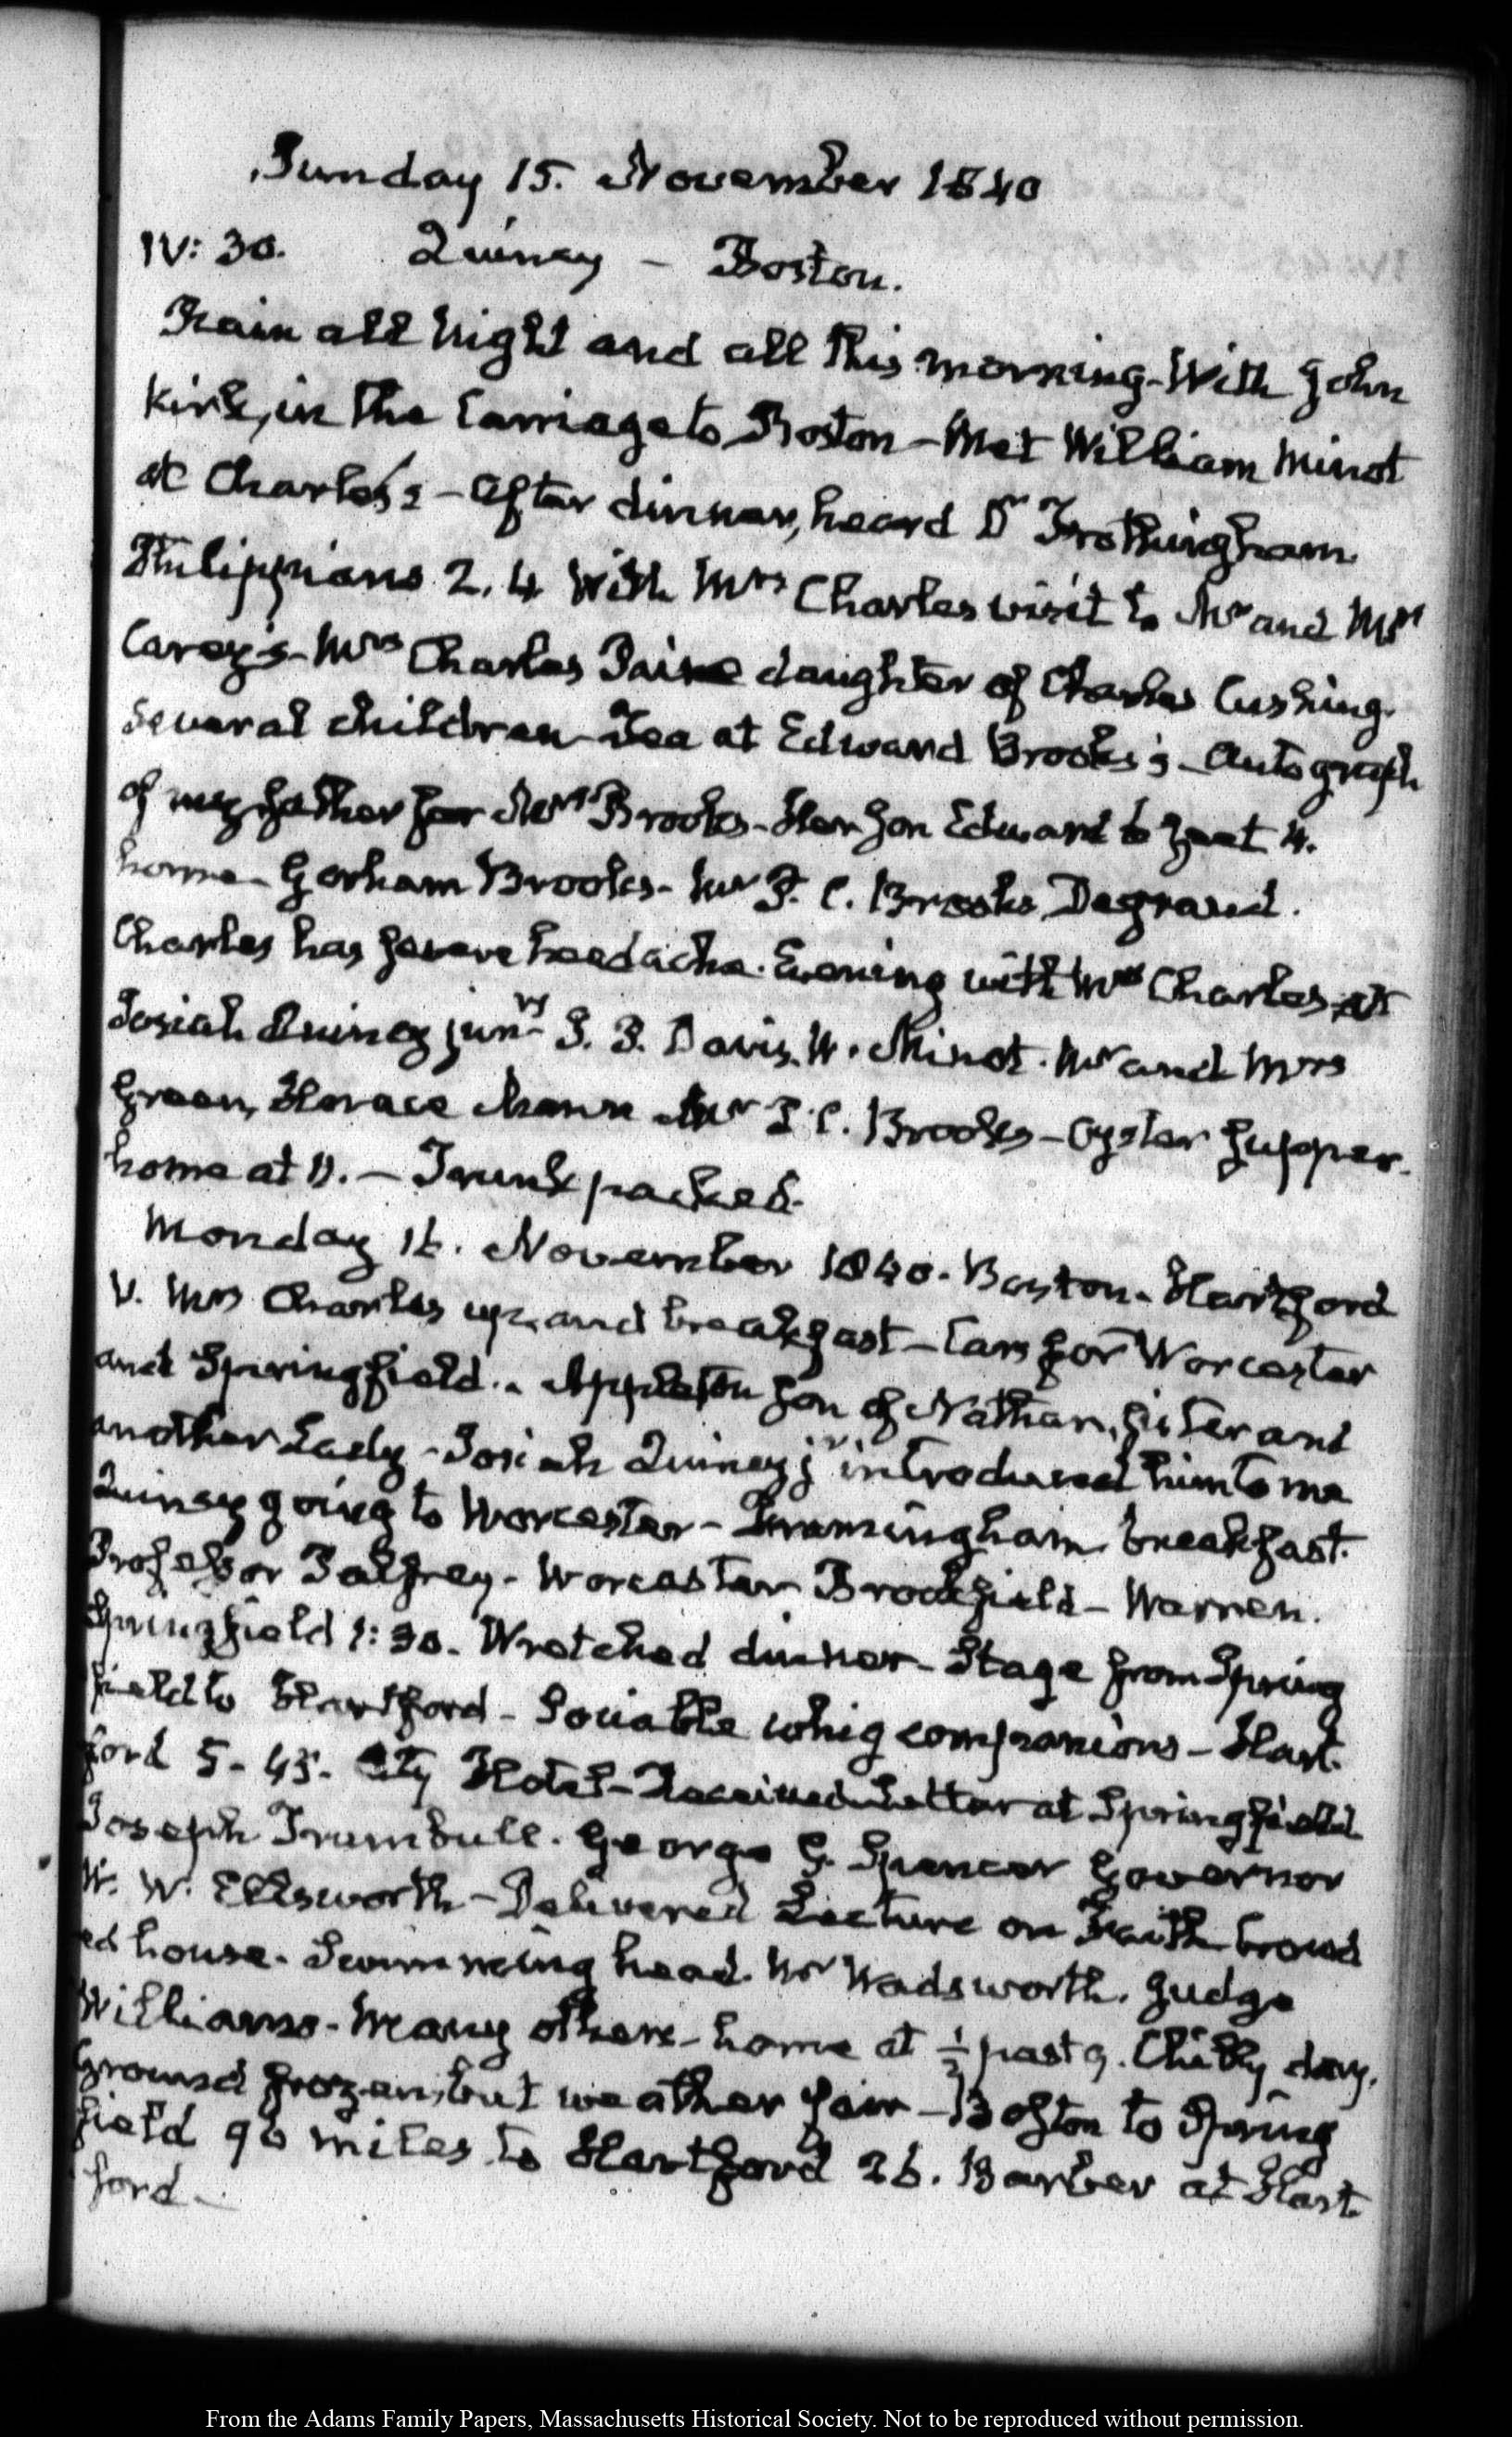 Sunday 15. November 1840
IV: 30. Quincy – Boston.
Rain all Night and all this morning – With John
Kirk, in the Carriage to Boston – Met William Minot
at Charles's – After dinner, heard Dr Frothingham
Philippians 2. 4 With Mrs Charles visit to Mr and Mrs
Carey's – Mrs Charles Paine daughter of Charles Cushing.
Several children – Tea at Edward Brooks's – Autograph
of my father for Mrs Brooks – Her Son Edward 6 feet 4.
home – Gorham Brooks – Mr P. C. Brooks Degrand.
Charles has severe headache. Evening with Mrs Charles at
Josiah Quincy junrs J. P. Davis. W. Minot. Mr and Mrs
Green, Horace Mann Mr P. C. Brooks – Oyster Supper.
home at 11. – Trunk packed.
Monday 16. November 1840. Boston – Hartford
V. Mrs Charles up, and breakfast – Cars for Worcester
and Springfield. – Appleton Son of Nathan, Sister and
another Lady – Josiah Quincy jr introduced him to me
Quincy going to Worcester – Framingham breakfast.
Professor Palfrey – Worcester Brookfield – Warren.
Springfield 1: 30. Wretched dinner – Stage from Spring
field to Hartford – Sociable whig companions – Hart.
ford 5 – 45. City Hotel – Received Letter at Springfield
Joseph Trumbull. George G. Spencer Governor
W. W. Ellsworth – Delivered Lecture on Faith crowd
ed house. Swimming head. Mr Wadsworth. Judge
Williams – Many others – home at ½ past 9. Chilly day.
Ground frozen, but weather fair – Boston to Spring
field 96 miles to Hartford 26. Barber at Hart
ford –
From the Adams Family Papers, Massachusetts Historical Society. Not to be reproduced without permission.